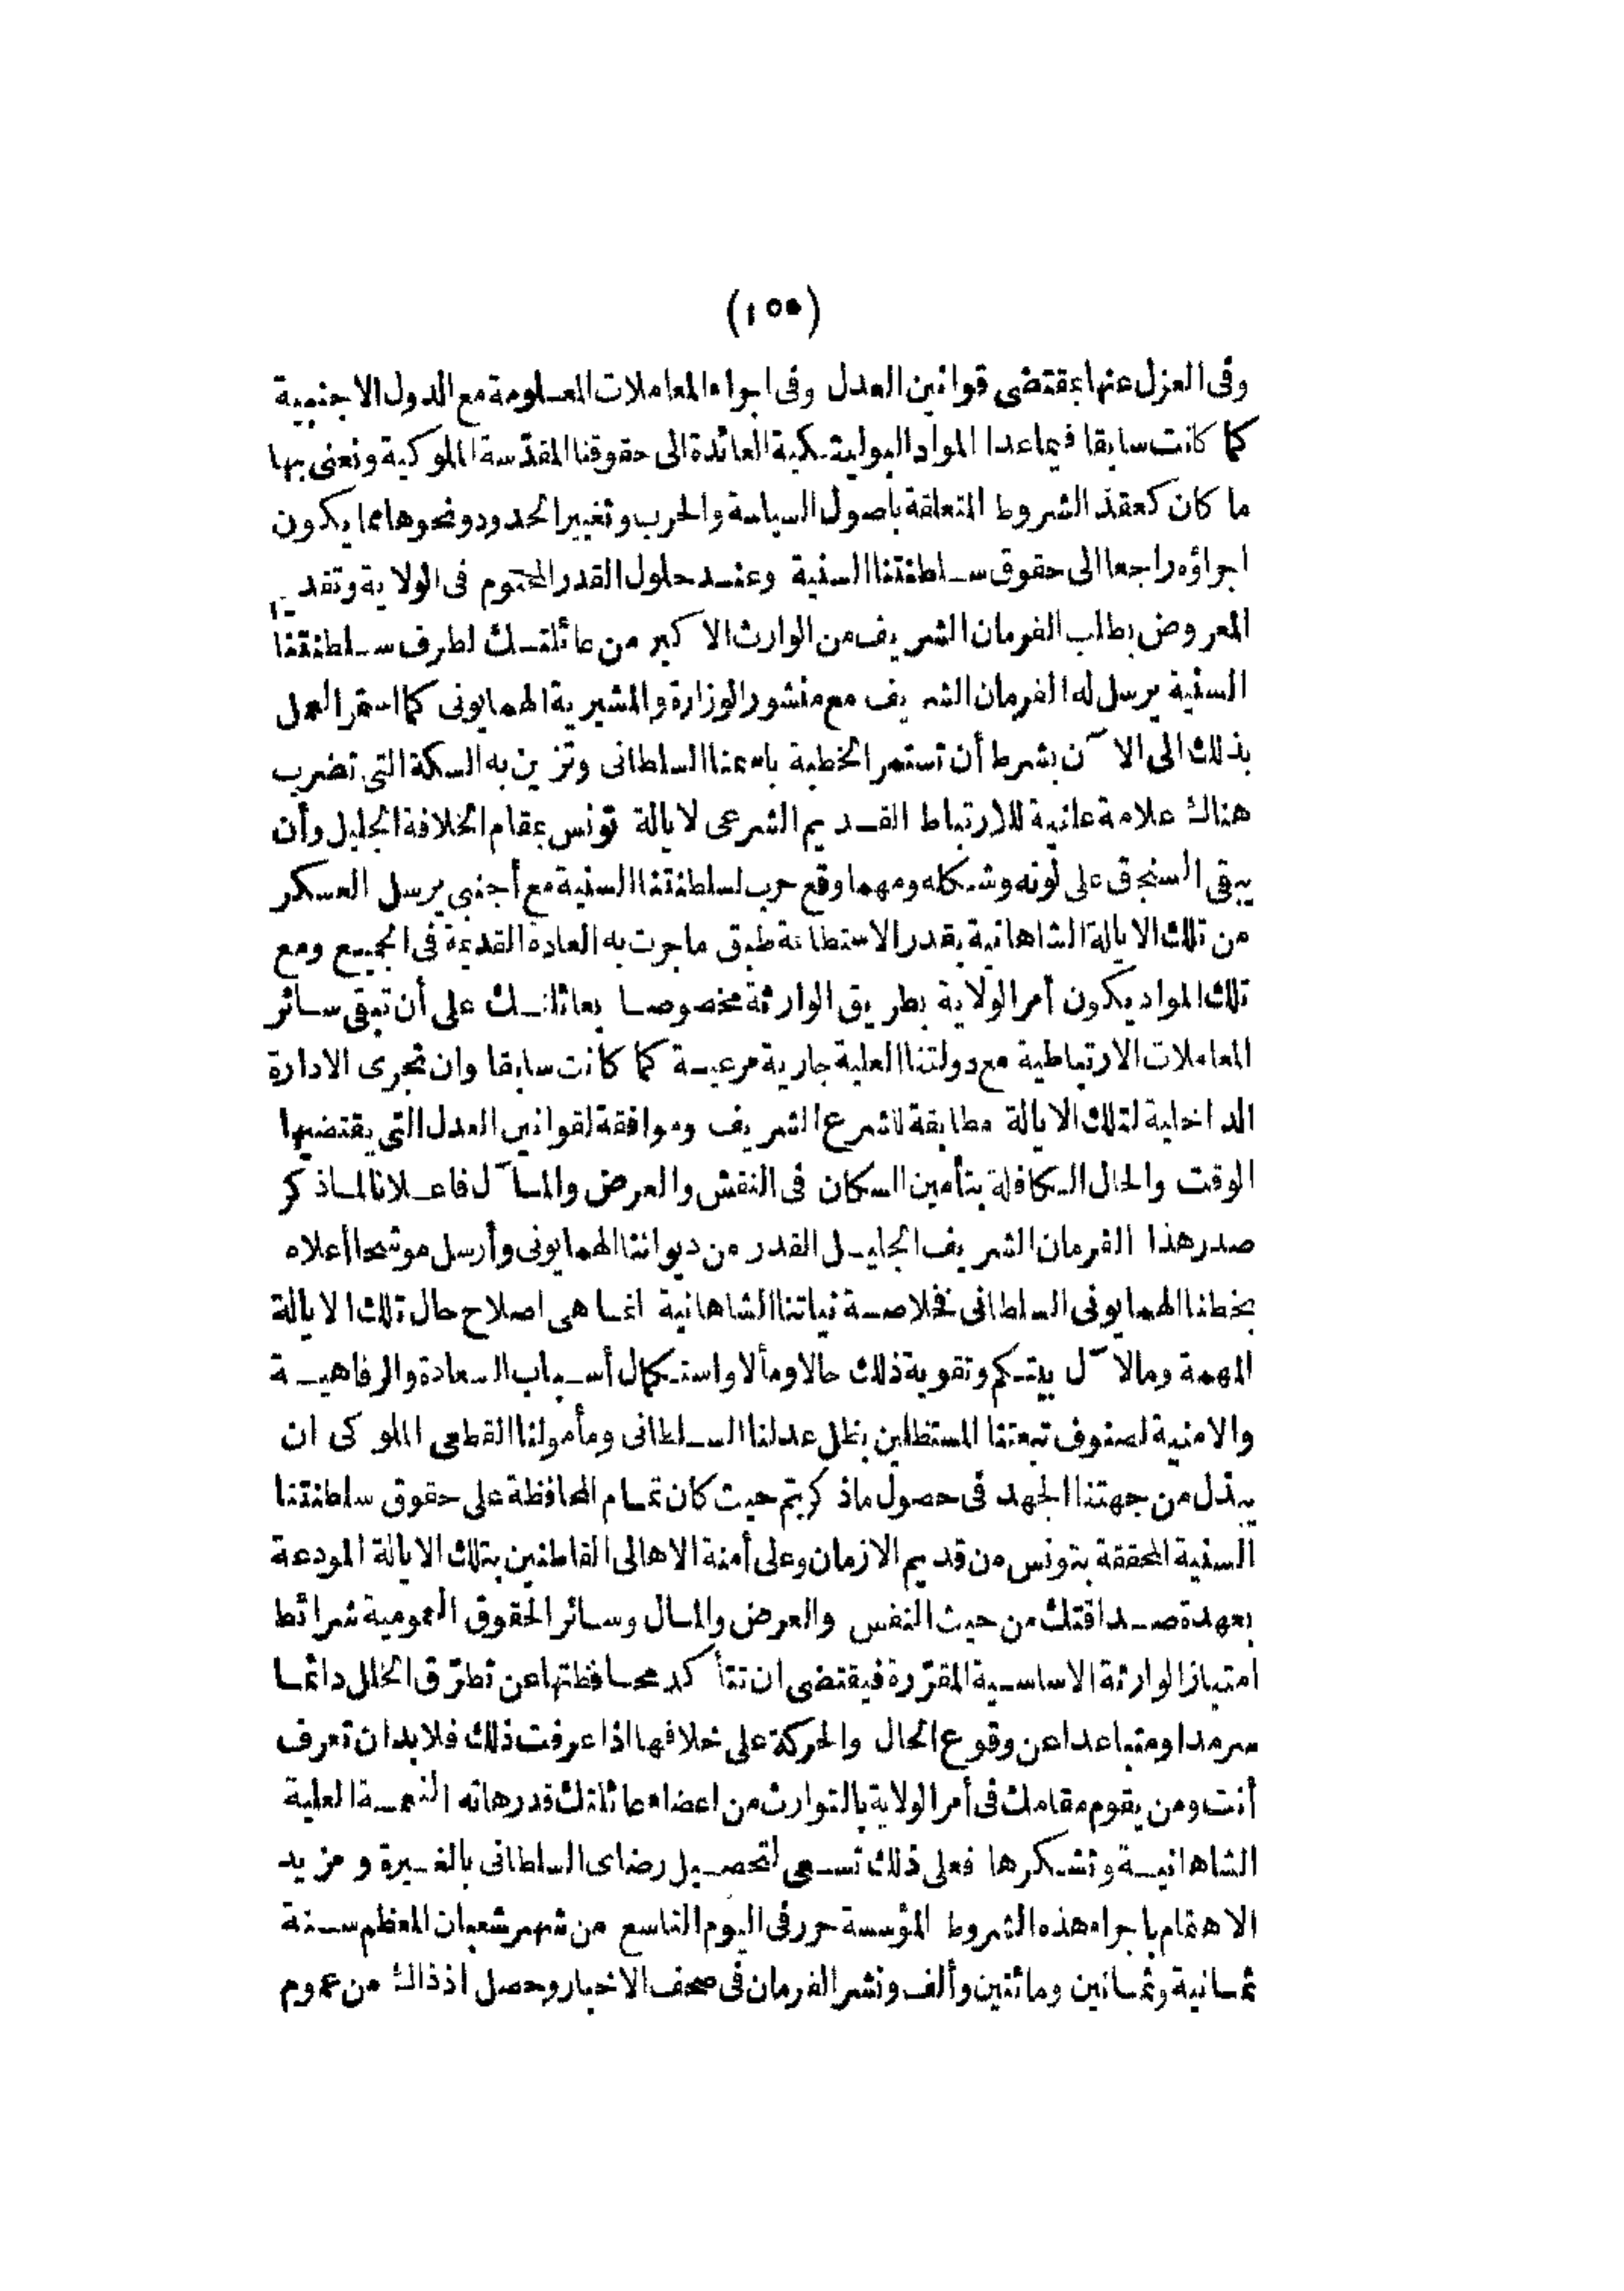 (١٥٥)
وفى العزل عنها بمقتضى قوانين العدل وفى اجراء المعاملات المعلومة مع الدول الاجنبية
كما كانت سابقا فيما عدا المواد البوليتيكية العائدة الى حقوقنا المقدّسة الملوكية ونعنى بها
ما كان كعقد الشروط المتعلقة بأصول السياسة والحرب وتغيير الحدود ونحوها مما يكون
اجراؤه راجعا الى حقوق سلطنتنا السنية وعند حلول القدر المحتوم فى الولاية وتقديم
المعروض بطلب الفرمان الشريف من الوارث الاكبر من عائلتك لطرف سلطنتنا
السنية يرسل له الفرمان الشريف مع منشور الوزارة والمشيرية الهمايونى كما استمر العمل
بذلك الى الآن بشرط أن تستمر الخطبة باسمنا السلطانى وتزين به السكة التى تضرب
هناك علامة علنية للارتباط القديم الشرعى لايالة تونس بمقام الخلافة الجليل وأن
يبقى السنجق على لونه وشكله ومهما وقع حرب لسلطنتنا السنية مع أجنبى يرسل العسكر
من تلك الايالة الشاهانية بقدر الاستطاعة طبق ما جرت به العادة القديمة فى الجميع ومع
تلك المواد يكون أمر الولاية بطريق الوارثة مخصوصا بعائلتك على أن تبقى سائر
المعاملات الارتباطية مع دولتنا العلية جارية مرعية كما كانت سابقا وان تجرى الادارة
الداخلية لتلك الايالة مطابقة للشرع الشريف وموافقة لقوانين العدل التى يقتضيها
الوقت والحال الكافلة بتأمين السكان فى النفس والعرض والمآل فاعلانا لما ذكر
صدر هذا الفرمان الشريف الجليل القدر من ديواننا الهمايونى وأرسل موشحا أعلاه
بخطنا الهمايونى السلطانى فخلاصة نياتنا الشاهانية انما هى اصلاح حال تلك الايالة
المهمة ومالآل بيتكم وتقوية ذلك حالا ومآلا واستكمال أسباب السعادة والرفاهية
والامنية لصنوف تبعتنا المستظلين بظل عدلنا السلطانى ومأمولنا القطعى الملوكى ان
يبذل من جهتنا الجهد فى حصول ما ذكر بتم حيث كان تمام المحافظة على حقوق سلطنتنا
السنية المحققة بتونس من قديم الازمان وعلى أمنة الاهالى القاطنين بتلك الايالة المودعة
بعهدة صداقتك من حيث النفس والعرض والمال وسائر الحقوق العمومية شرائط
امتياز الوارثة الاساسية المقرّرة فيقتضى ان تتأكد محافظتها عن تطرّق الخلل دائما
سرمدا ومتباعدا عن وقوع الحال والحركة على خلافها اذا عرفت ذلك فلا بد ان تعرف
أنت ومن يقوم مقامك فى أمر الولاية بالتوارث من اعضاء عائلتك قدر هاته النعمة العلية
الشاهانية وتشكرها فعلى ذلك تسعى لتحصيل رضاى السلطانى بالغيرة ومزيد
الاهتمام باجراء هذه الشروط المؤسسة حرر فى اليوم التاسع من شهر شعبان المعظم سنة
ثمانية وثمانين ومائتين وألف ونشر الفرمان فى صحف الاخبار وحصل اذ ذاك من عموم